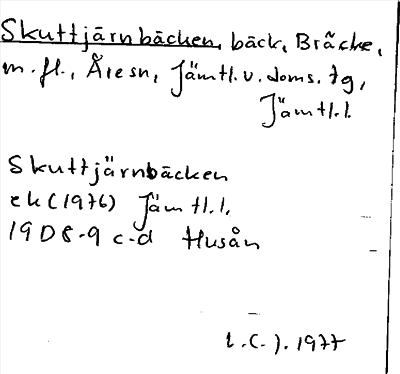 Skuttjärnbäcken, bäck, Bräcke,
m.fl., Åresn, Jämtl.v.doms.tg,
Jämtl.l.
Skuttjärnbäcken
ek (1976) Jämtl.l.
19D 8-9 c-d Husån
1977